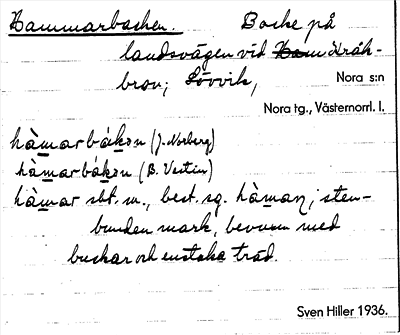 Hammarbacken. Backe på
landsvägen vid Kråk-
bron; Lövvik, Nora s:n
Nora tg., Västernorrl. l.
hàmarbákan (J. Norberg)
hàmarbákan (B. Vestin)
hàmar sbt. m., best. sg. hàman; sten-
bunden mark, bevuxen med
buskar och enstaka träd.
Sven Hiller 1936.